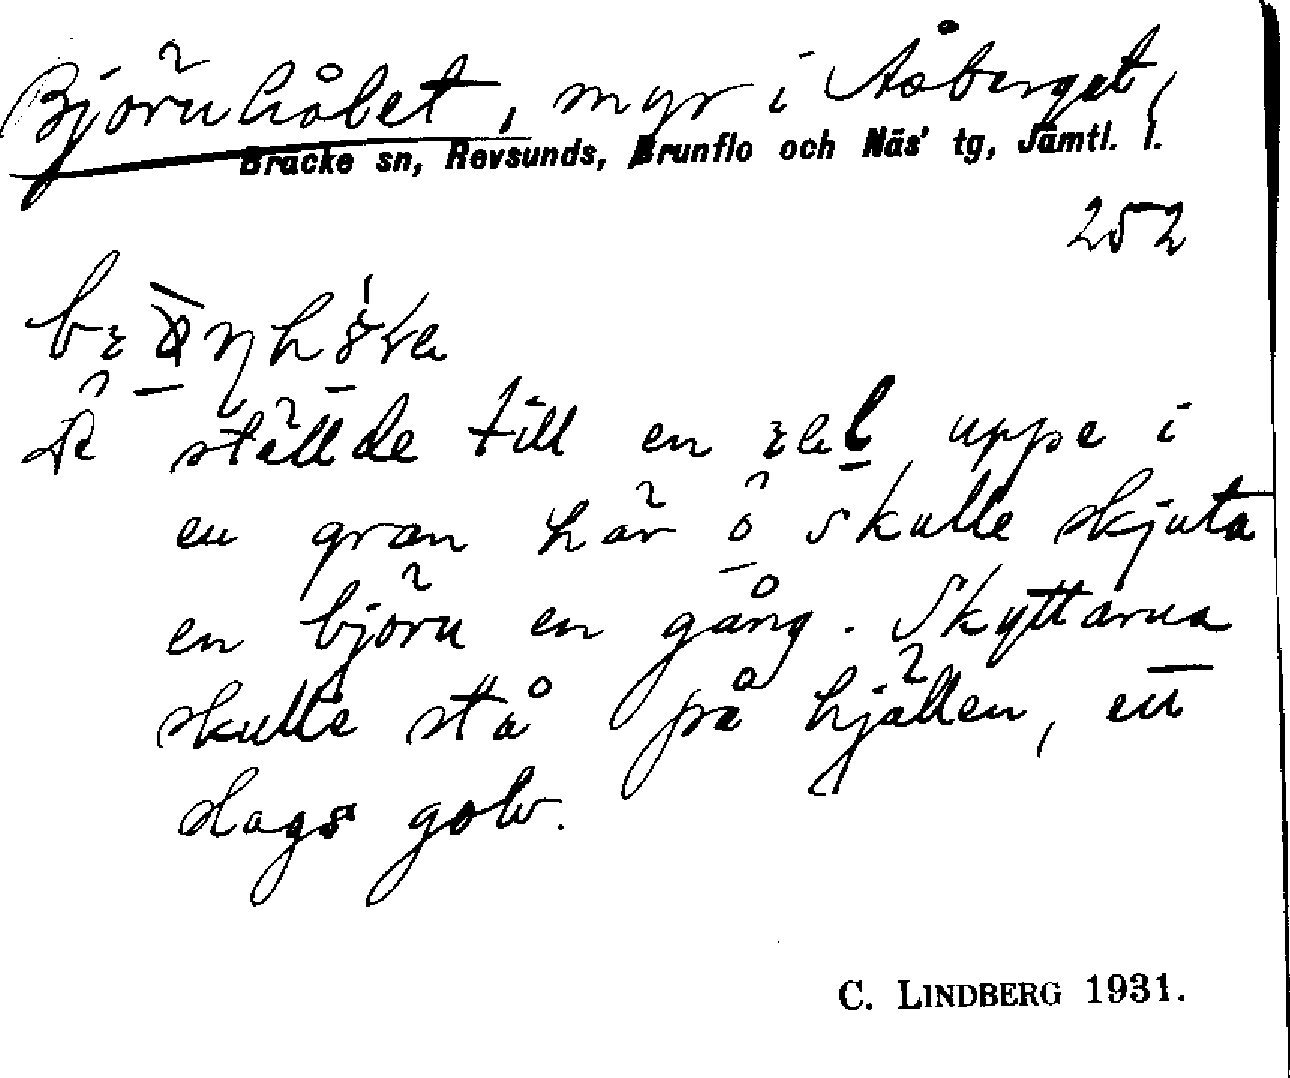 Björnhålet, myr i Åsberget,
Bräcke sn, Revsunds, Brunflo och Näs' tg, Jämtl. l.
252
ställde till en uppe i
en gran här ö skulle skjuta
en björn en gång. Skyttarna
skulle stå på hjällen, ett
slags golv.
C. LINDBERG 1931.